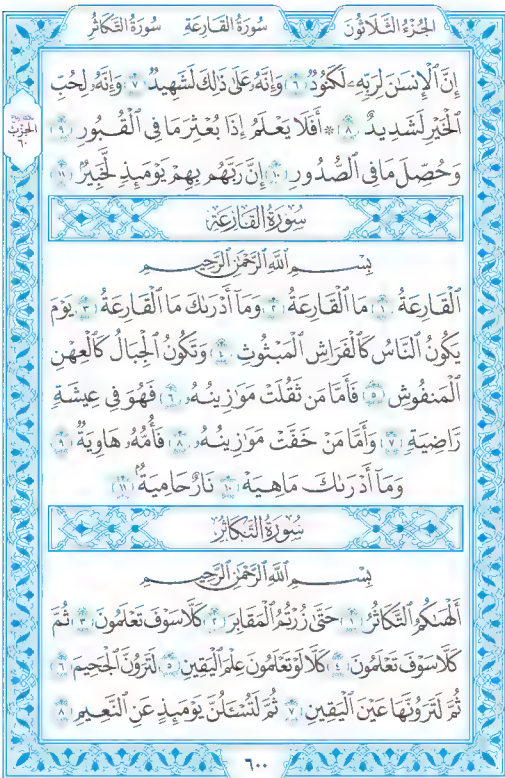 الجُزْءُ الثَّلَاثُونَ سُورَةُ القَارِعَةِ سُورَةُ التَّكَاثُرِ
إِنَّ ٱلْإِنسَٰنَ لِرَبِّهِۦ لَكَنُودٌ ﴿٦﴾ وَإِنَّهُۥ عَلَىٰ ذَٰلِكَ لَشَهِيدٌ ﴿٧﴾ وَإِنَّهُۥ لِحُبِّ
ٱلْخَيْرِ لَشَدِيدٌ ﴿٨﴾ ۞ أَفَلَا يَعْلَمُ إِذَا بُعْثِرَ مَا فِى ٱلْقُبُورِ ﴿٩﴾
الحِزْبُ
٦٠
وَحُصِّلَ مَا فِى ٱلصُّدُورِ ﴿١٠﴾ إِنَّ رَبَّهُم بِهِمْ يَوْمَئِذٍ لَّخَبِيرٌۢ ﴿١١﴾
سُورَةُ القَارِعَةِ
بِسْمِ ٱللَّهِ ٱلرَّحْمَٰنِ ٱلرَّحِيمِ
ٱلْقَارِعَةُ ﴿١﴾ مَا ٱلْقَارِعَةُ ﴿٢﴾ وَمَآ أَدْرَىٰكَ مَا ٱلْقَارِعَةُ ﴿٣﴾ يَوْمَ
يَكُونُ ٱلنَّاسُ كَٱلْفَرَاشِ ٱلْمَبْثُوثِ ﴿٤﴾ وَتَكُونُ ٱلْجِبَالُ كَٱلْعِهْنِ
ٱلْمَنفُوشِ ﴿٥﴾ فَأَمَّا مَن ثَقُلَتْ مَوَٰزِينُهُۥ ﴿٦﴾ فَهُوَ فِى عِيشَةٍ
رَّاضِيَةٍ ﴿٧﴾ وَأَمَّا مَنْ خَفَّتْ مَوَٰزِينُهُۥ ﴿٨﴾ فَأُمُّهُۥ هَاوِيَةٌ ﴿٩﴾
وَمَآ أَدْرَىٰكَ مَا هِيَهْ ﴿١٠﴾ نَارٌ حَامِيَةٌۢ ﴿١١﴾
سُورَةُ التَّكَاثُرِ
بِسْمِ ٱللَّهِ ٱلرَّحْمَٰنِ ٱلرَّحِيمِ
أَلْهَىٰكُمُ ٱلتَّكَاثُرُ ﴿١﴾ حَتَّىٰ زُرْتُمُ ٱلْمَقَابِرَ ﴿٢﴾ كَلَّا سَوْفَ تَعْلَمُونَ ﴿٣﴾ ثُمَّ
كَلَّا سَوْفَ تَعْلَمُونَ ﴿٤﴾ كَلَّا لَوْ تَعْلَمُونَ عِلْمَ ٱلْيَقِينِ ﴿٥﴾ لَتَرَوُنَّ ٱلْجَحِيمَ ﴿٦﴾
ثُمَّ لَتَرَوُنَّهَا عَيْنَ ٱلْيَقِينِ ﴿٧﴾ ثُمَّ لَتُسْـَٔلُنَّ يَوْمَئِذٍ عَنِ ٱلنَّعِيمِ ﴿٨﴾
٦٠٠